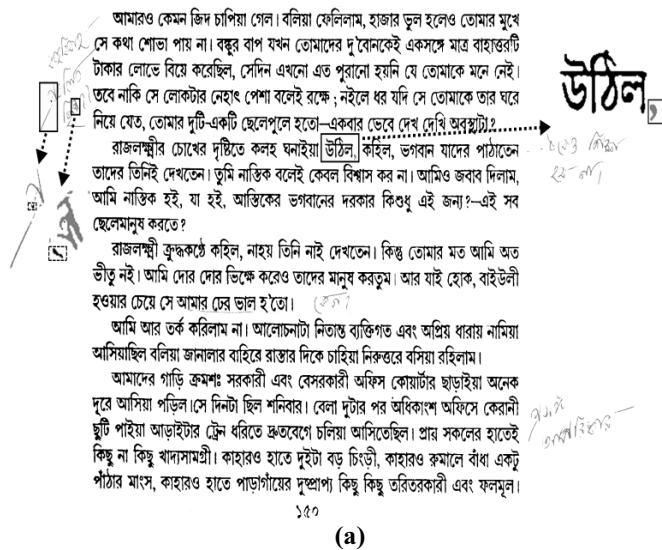 আমারও কেমন জিদ চাপিয়া গেল। বলিয়া ফেলিলাম, হাজার ভুল হলেও তোমার মুখে
সে কথা শোভা পায় না। বঙ্কুর বাপ যখন তোমাদের দু'বোনকেই একসঙ্গে মাত্র বাহাত্তরটি
টাকার লোভে বিয়ে করেছিল, সেদিন এখনো এত পুরানো হয়নি যে তোমাকে মনে নেই।
তবে নাকি সে লোকটার নেহাৎ পেশা বলেই রক্ষে; নইলে ধর যদি সে তোমাকে তার ঘরে
নিয়ে যেত, তোমার দুটি-একটি ছেলেপুলে হতো—একবার ভেবে দেখ দেখি অবস্থাটা?
উঠিল,
রাজলক্ষ্মীর চোখের দৃষ্টিতে কলহ ঘনাইয়া উঠিল, কহিল, ভগবান যাদের পাঠাতেন
তাদের তিনিই দেখতেন। তুমি নাস্তিক বলেই কেবল বিশ্বাস কর না। আমিও জবাব দিলাম,
আমি নাস্তিক হই, যা হই, আস্তিকের ভগবানের দরকার কিশুধু এই জন্য?—এই সব
ছেলেমানুষ করতে?
রাজলক্ষ্মী ক্রুদ্ধকণ্ঠে কহিল, নাহয় তিনি নাই দেখতেন। কিন্তু তোমার মত আমি অত
ভীতু নই। আমি দোর দোর ভিক্ষে করেও তাদের মানুষ করতুম। আর যাই হোক, বাইউলী
হওয়ার চেয়ে সে আমার ঢের ভাল হ'তো।
আমি আর তর্ক করিলাম না। আলোচনাটা নিতান্ত ব্যক্তিগত এবং অপ্রিয় ধারায় নামিয়া
আসিয়াছিল বলিয়া জানালার বাহিরে রাস্তার দিকে চাহিয়া নিরুত্তরে বসিয়া রহিলাম।
আমাদের গাড়ি ক্রমশঃ সরকারী এবং বেসরকারী অফিস কোয়ার্টার ছাড়াইয়া অনেক
দূরে আসিয়া পড়িল।সে দিনটা ছিল শনিবার। বেলা দুটার পর অধিকাংশ অফিসে কেরানী
ছুটি পাইয়া আড়াইটার ট্রেন ধরিতে দ্রুতবেগে চলিয়া আসিতেছিল। প্রায় সকলের হাতেই
কিছু না কিছু খাদ্যসামগ্রী। কাহারও হাতে দুইটা বড় চিংড়ী, কাহারও রুমালে বাঁধা একটু
পাঁঠার মাংস, কাহারও হাতে পাড়াগাঁয়ের দুষ্প্রাপ্য কিছু কিছু তরিতরকারী এবং ফলমূল।
১৫০
(a)